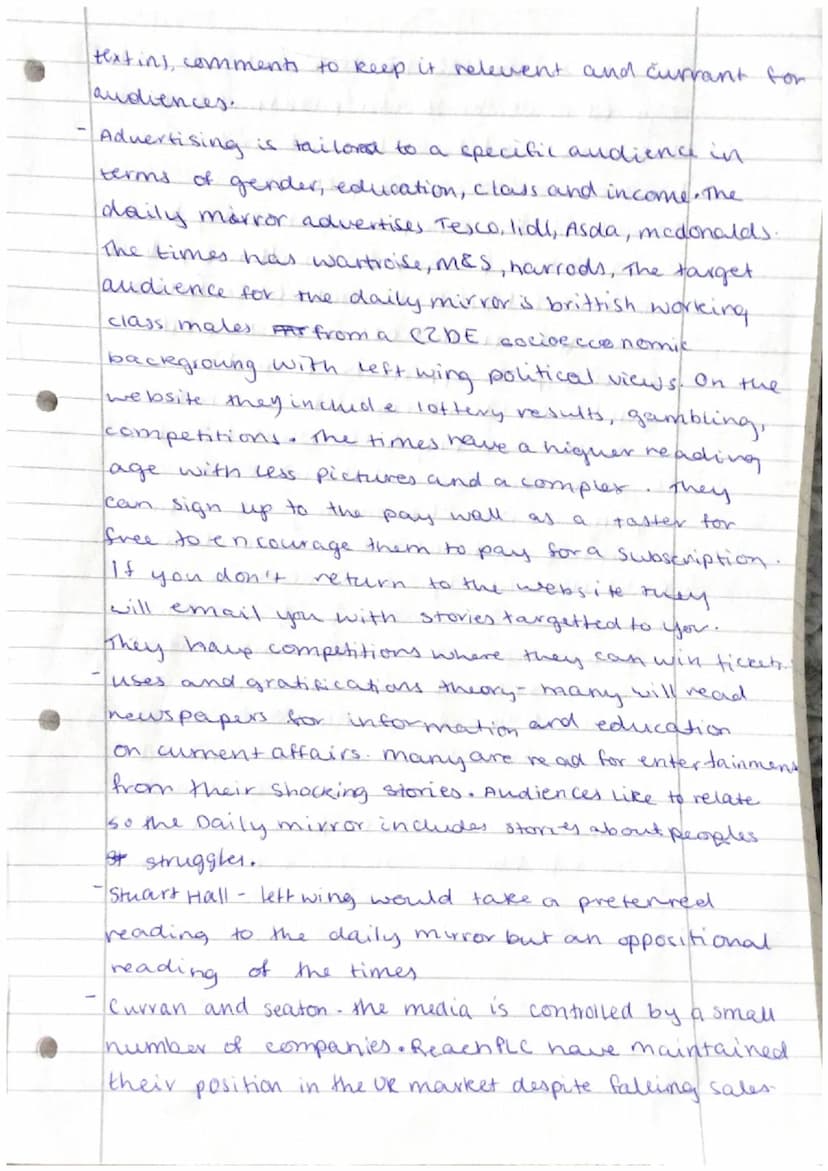 texting, comments to keep it relevent and currant for
audiences.
- Advertising is tailored to a specific audience in
terms of gender, education, class and income. The
daily mirror advertises Tesco, lidl, Asda, mcdonalds.
The times has wartroise, M&S, harrods, The target
audience for the daily mirror is brittish working
class males from a C2DE socioecconomic
backgroung with left wing political views. On the
website they include lottery results, gambling,
competitions. The times have a higher reading
age with less pictures and a complex. They
can sign up to the pay wall as a taster for
free to encourage them to pay for a subscription.
If you don't return to the website they
will email you with stories targetted to you.
They have competitions where they can win tickets.
- uses and gratifications theory - many will read
newspapers for information and education
on current affairs. many are read for entertainment
from their shocking stories. Audiences like to relate
so the Daily mirror includes stories about peoples
struggles.
- Stuart Hall - left wing would take a preferred
reading to the daily mirror but an oppositional
reading of the times
- Curran and seaton - the media is controlled by a small
number of companies. Reach PLC have maintained
their position in the UK market despite falling sales.